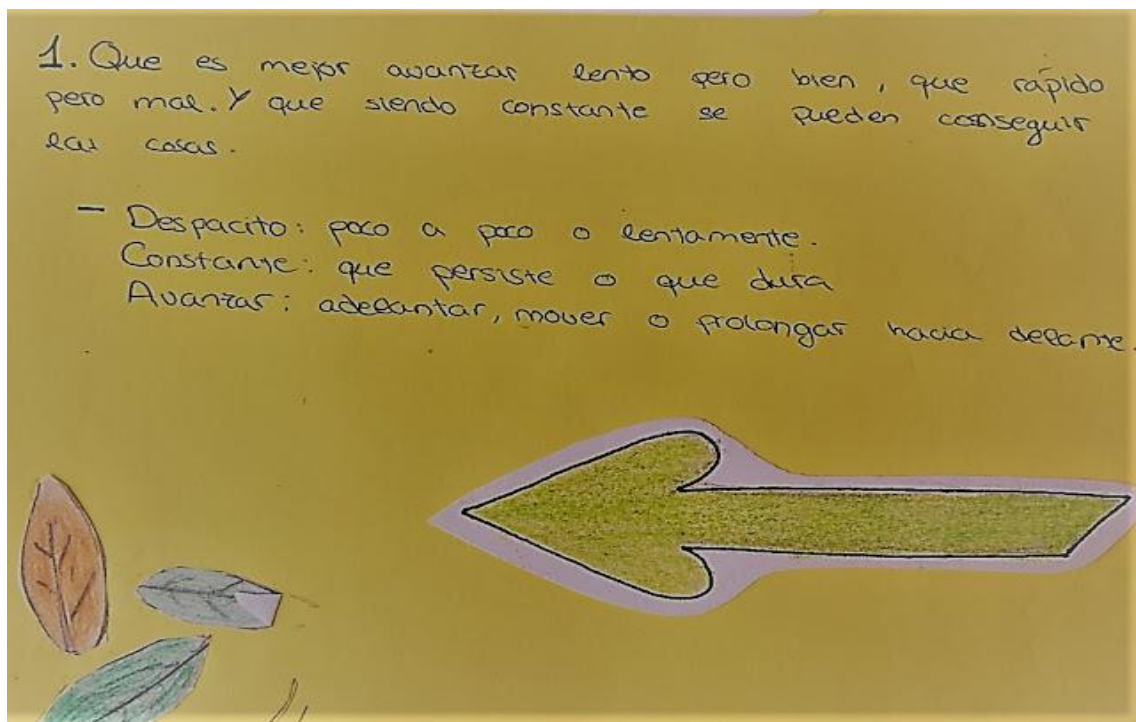 1. Que es mejor avanzar lento pero bien, que rápido
pero mal. Y que siendo constante se pueden conseguir
las cosas.
- Despacito: poco a poco o lentamente.
Constante: que persiste o que dura
Avanzar: adelantar, mover o prolongar hacia delante.